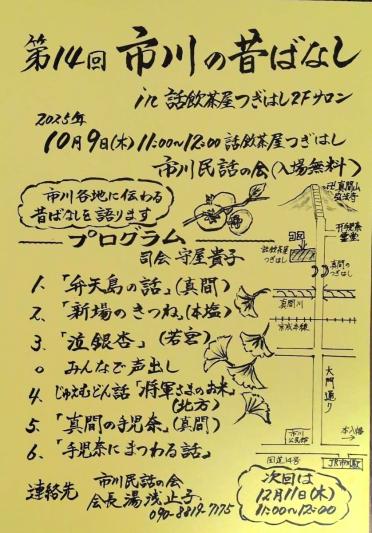 第14回 市川の昔ばなし
in 話飲茶屋つぎはし2Fサロン
2025年
10月9日(木) 11:00~12:00 話飲茶屋つぎはし
市川民話の会(入場無料)
市川各地に伝わる
昔ばなしを語ります
プログラム
司会 守屋貴子
1.「弁天島の話」(真間)
2.「新場のきつね」(本塩)
3.「泣銀杏」(若宮)
○ みんなで声出し
4. じゅえむどん話「将軍さまのお米」
(北方)
5.「真間の手児奈」(真間)
6.「手児奈にまつわる話」
連絡先 市川民話の会
会長 湯浅止子
090-8819-7175
卍真間山
弘法寺
手児奈
霊堂
話飲茶屋
つぎはし
真間の
つぎはし
真間川
京成本線
大門通り
市川
公民館
本八幡
国道14号
JR市川駅
次回は
12月11日(木)
11:00~12:00